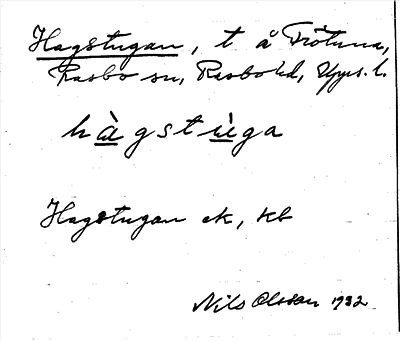 Hagstugan, t å Frötuna,
Rasbo sn, Rasbo hd, Upps. l.
hàgstùga
Hagstugan ek, kb
Nils Olsson 1932